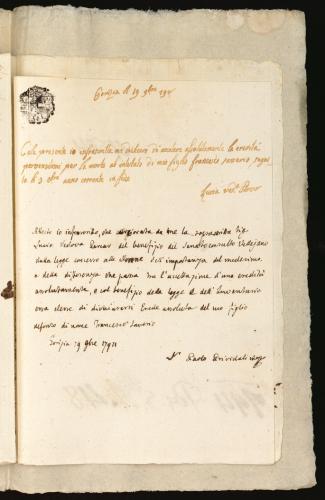 Gorizia li 19 9bre 1791
Colla presente io infrascritta mi dichiaro di accettare assolutamente la eredità
pervenutami per la morte ab intestato di mio figlio Francesco Saverio segui-
ta li 3 8bre anno corrente in fede
Lucia ved.
Attesto io infrascritto, che
Lucia Vedova del beneficio del Senatoconsulto Vellejano
dalla legge concesso alle Donne dell'importanza del medesimo
e della differenza che passa tra l'accettazione d'una eredità
assolutamente, e col beneficio della legge e dell'Inventario
essa elesse di dichiararsi Erede assoluta del suo figlio
defonto di nome Francesco Saverio
Gorizia 19 9bre 1791
Paolo